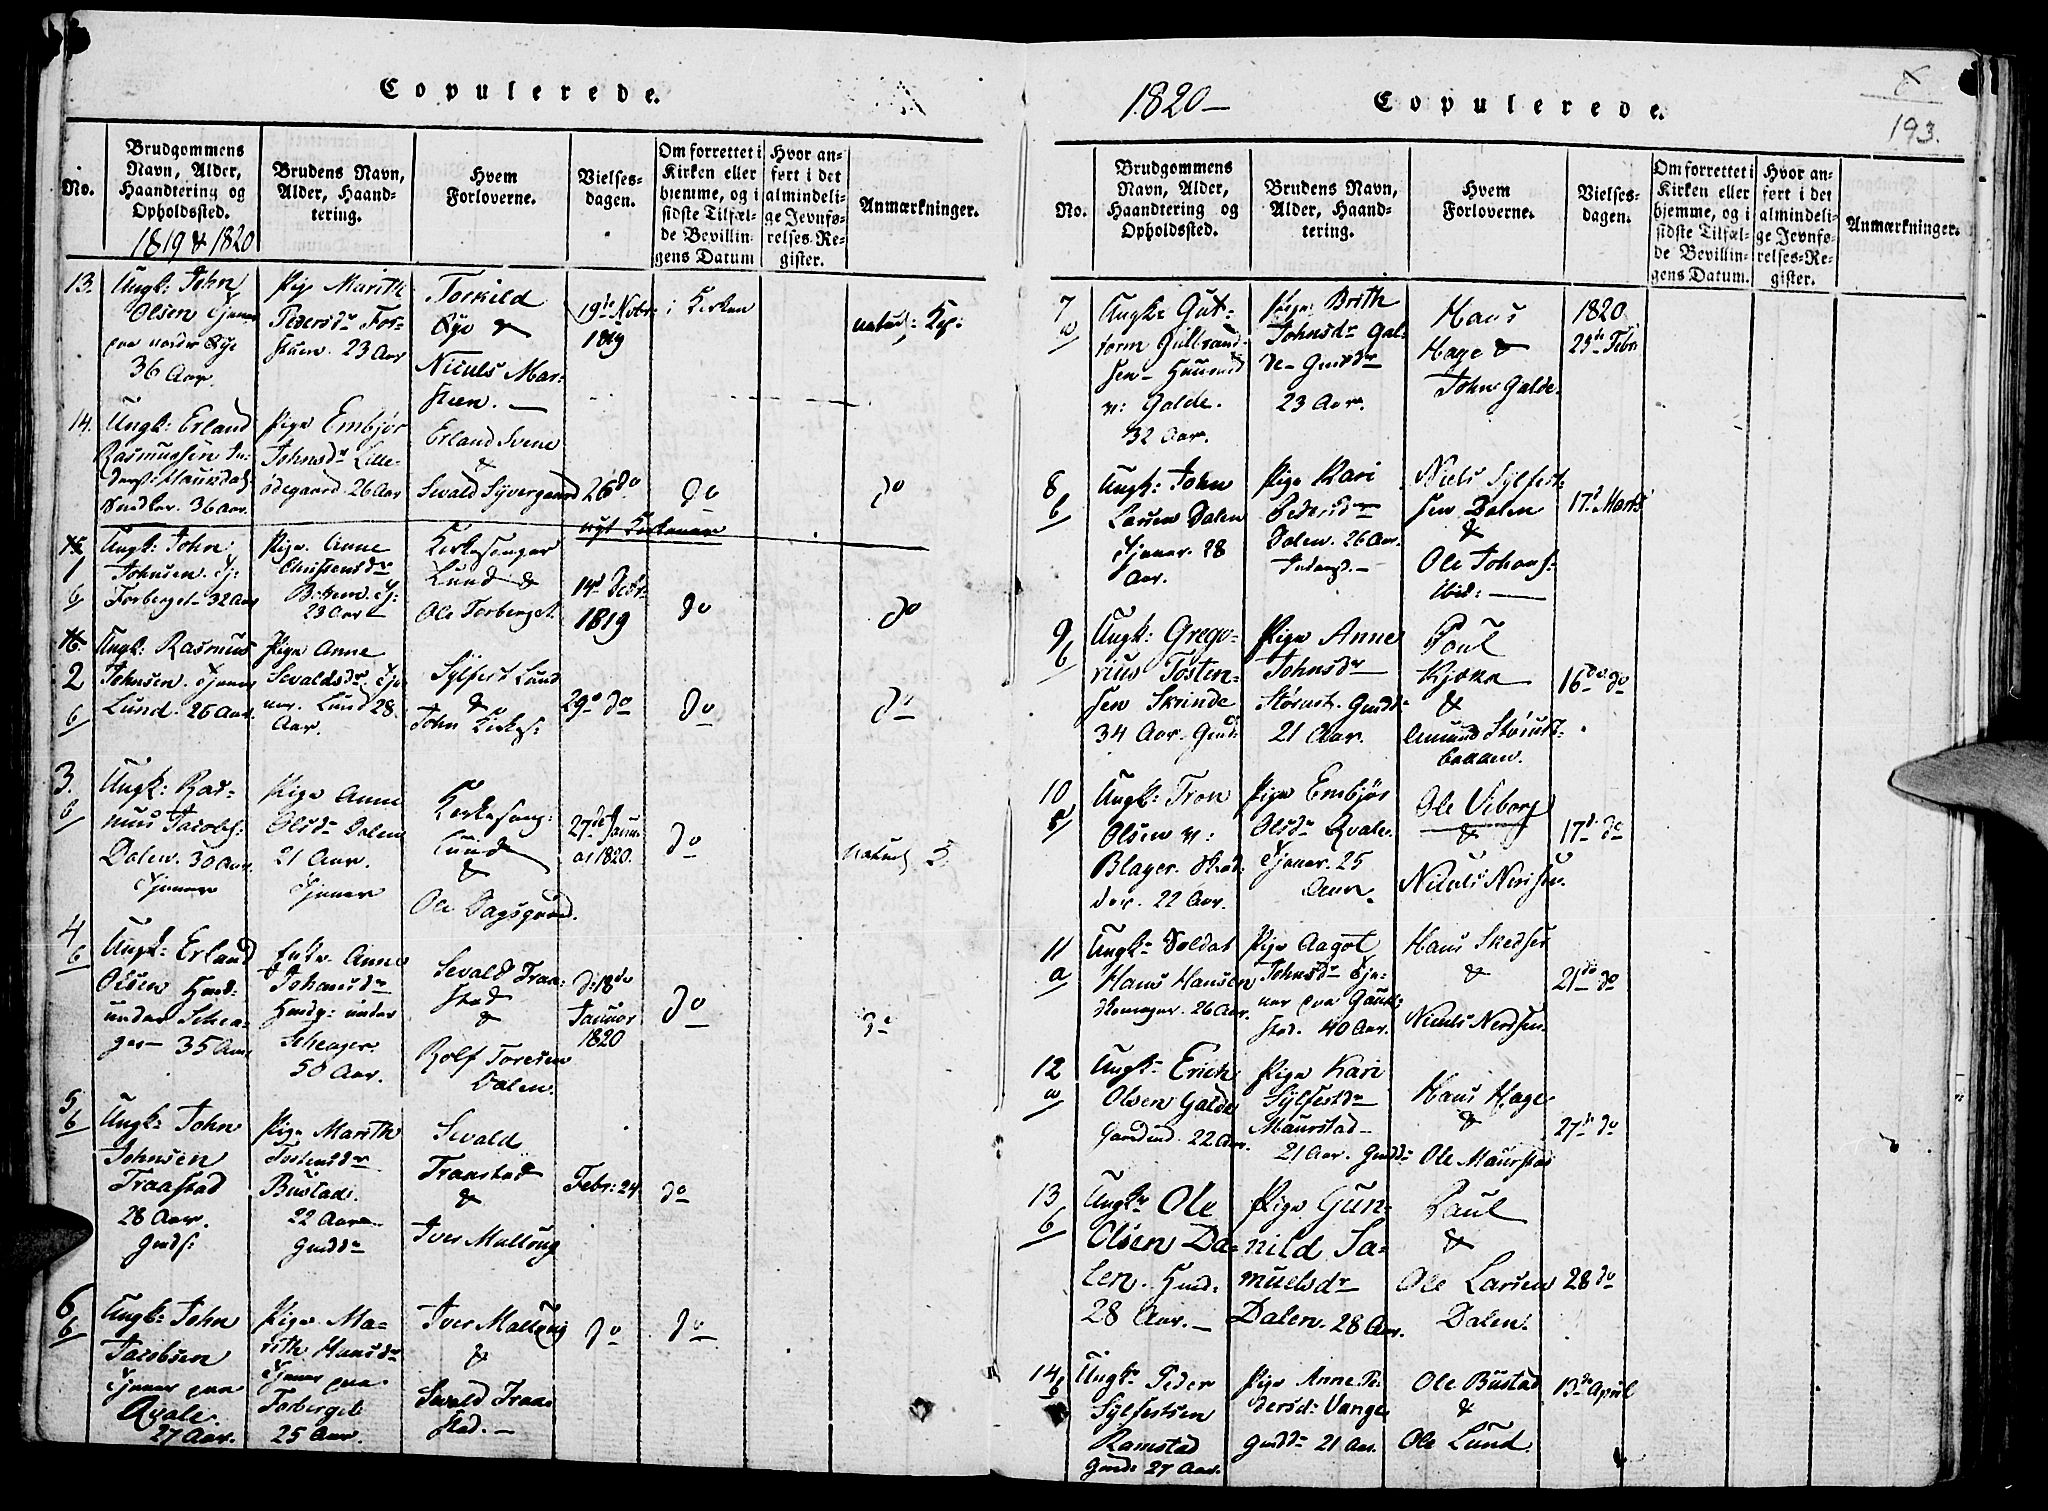 Copulerede.
No.
Brudgommens
Navn, Alder,
Haandtering og
Opholdssted.
1819 & 1820
Brudens Navn,
Alder, Haand-
tering.
Hvem
Forloverne.
Vielses-
dagen.
Om forrettet i
Kirken eller
hjemme, og i
sidste Tilfæl-
de Bevillin-
gens Datum
Hvor an-
ført i det
almindeli-
ge Jevnfø-
relses-Re-
gister.
Anmærkninger.
13.
Ungk: John
Olsen Tjener
paa nordr Øye
36 Aar.
Pige Marith
Pedersdr For-
stuen. 23 Aar
Torkild
Øye &
Niculs Mar-
steen.
19de Nvbr:
1819
i Kirken
naturl: Kop:
14.
Ungk: Erland
Rasmussen
36 Aar.
Pige Embjør
Johnsdr Lille-
ødegaard 26 Aar
Erland Svene
&
Sevald Syvergaard
26 do
do
do
nyt Kirkeaar
15
1
6
Ungk: John
Johnsen. Tj:
Forberget 32 Aar
Pige Anne
Christensdr
23 Aar
Kirkesanger
Lund &
Ole Forberget
14d Decbr
1819
do
do
16.
2
6
Ungk: Rasmus
Johnsen. Tjener
Lund. 26 Aar.
Pige Anne
Sevaldsdr. Tje-
ner. Lund 28.
Aar.
Sylfest Lund
&
John Kirkes:
29de do
do
do
3.
6
Ungk: Ras-
mus Jacobs:
Dalen. 30 Aar.
Tjener
Pige Anne
Olsdr Dalen
21 Aar.
Tjener
Kirkesang:
Lund
&
Ole Dagsgrind.
27de Janu-
ar 1820.
do
naturl
4
6
Ungk: Erland
Olsen Huusd:
under Schea-
ger 35 Aar
Enke Anne
Johansdr
Huusg: under
Scheager.
50 Aar.
Sevald Traa-
stad
&
Rolf Toresen
Dalen.
d: 18de
Januar
1820
do
do
5
6
Ungk: John
Johnsen
Traastad
28 Aar.
Gmds:
Pige Marith
Tostensdr
Bustad.
22 Aar
Gmddr
Sevald
Traastad
&
Iver Mallung
Febr: 24.
do
6
6
Ungk: John
Jacobsen
Tjener paa
Qvale.
27 Aar.
Pige Ma-
rith Hansdr
Tjener paa
Forberget
25 Aar.
Iver Mallung
&
Sevald Traa-
stad.
do
do
1820
Copulerede.
193.
No.
Brudgommens
Navn, Alder,
Haandtering og
Opholdssted.
Brudens Navn,
Alder, Haand-
tering.
Hvem
Forloverne.
Vielses-
dagen.
Om forrettet i
Kirken eller
hjemme, og i
sidste Tilfæl-
de Bevillin-
gens Datum.
Hvor an-
ført i det
almindeli-
ge Jevnfø-
relses-Re-
gister.
Anmærkninger.
7
a
Ungk: Gut-
torm Gulbrand-
sen Huusmd
n: Galde.
32 Aar.
Pige Brith
Johnsdr Gal-
de Gmddr
23 Aar.
Hans
Hage &
John Galde.
1820
23de Febr
8
6
Ungk: John
Larsen Dalen
Tjener. 28
Aar.
Pige Kari
Pedersdr
Dalen. 26 Aar.
Niels Sylfest-
sen Dalen
&
Ole Johans:
ibid:
17d. Marts
9
6
Ungk: Grego-
rius Tosten-
sen Skrinde
34 Aar. Gmd:
Pige Anne
Johnsdr
Størust. Gmddr
21 Aar.
Poul
Kjøkn
&
Amund Størust-
bakken.
16de do
10
Ungk: Tron
Olsen n:
Blager. Skræd-
der. 22 Aar.
Pige Embjør
Olsdr Qvale.
Tjener. 25
Aar.
Ole Viborg
&
Niculs Nerisen.
17d. do
11
a
Ungk: Soldat
Hans Hansen
Skomager. 26 Aar.
Pige Aagot
Johnsdr Tje-
ner paa Gauk-
stad. 40 Aar.
Hans Skedser
&
Niculs Nerisen.
21de do
12
a
Ungk: Erich
Olsen Galde
22 Aar.
Pige Kari
Sylfestdr
Maurstad
21 Aar. Gmddr
Hans Hage
&
Ole Maurstad
27de do
13
6
Ungk: Ole
Olsen Da-
len. Hmd:
28 Aar.
Pige Gun-
nild Sa-
muelsdr
Dalen. 28 Aar.
Paul
&
Ole Larsen
Dalen.
28 do
14
6
Ungk: Peder
Sylfestsen
Ramstad
Gmd: 27 Aar.
Pige Anne Pe-
dersdr Vange
Gmddr 21 Aar.
Ole Bustad
&
Ole Lund
13de April